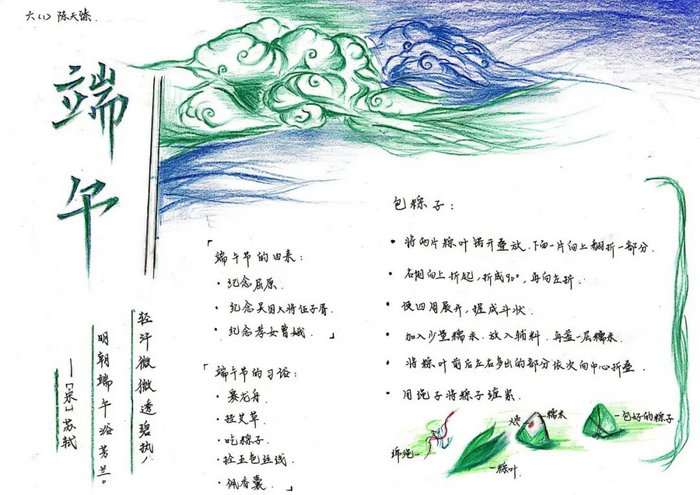 六(1) 陈天
端午
轻汗微微透碧纨,
明朝端午浴芳兰。
——[宋]苏轼
「端午节的由来:
· 纪念屈原.
· 纪念吴国大将伍子胥.
· 纪念孝女曹娥. 」
「端午节的习俗:
· 赛龙舟.
· 挂艾草.
· 吃粽子.
· 拴五色丝线.
· 佩香囊. 」
包粽子:
· 将两片粽叶错开叠放.下面一片向上翻折一部分.
· 右侧向上折起,折成90°,再向左折.
· 展开,握成斗状.
· 加入少量糯米.放入辅料.再盖一层糯米.
· 将粽叶前后左右多出的部分依次向中心折叠.
· 用绳子将粽子缠紧.
绵绳
粽叶
糯米
包好的粽子